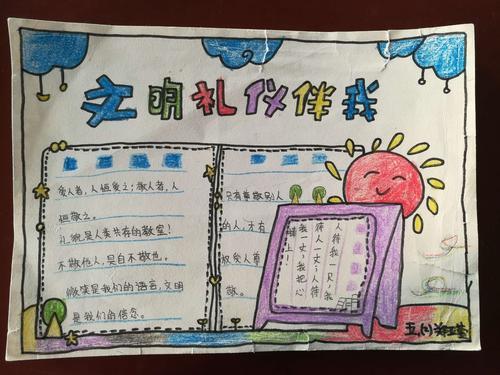 文明礼仪伴我
爱人者，人恒爱之；敬人者，人
恒敬之。
礼貌是人类共存的
不敬他人，是自不敬也。
微笑是我们的语言，文明
是我们的信念。
只有尊敬别人
的人，才有
权受人尊
敬。
人待我一尺，我
待人一丈；人待
我一丈，我把心
上！
五